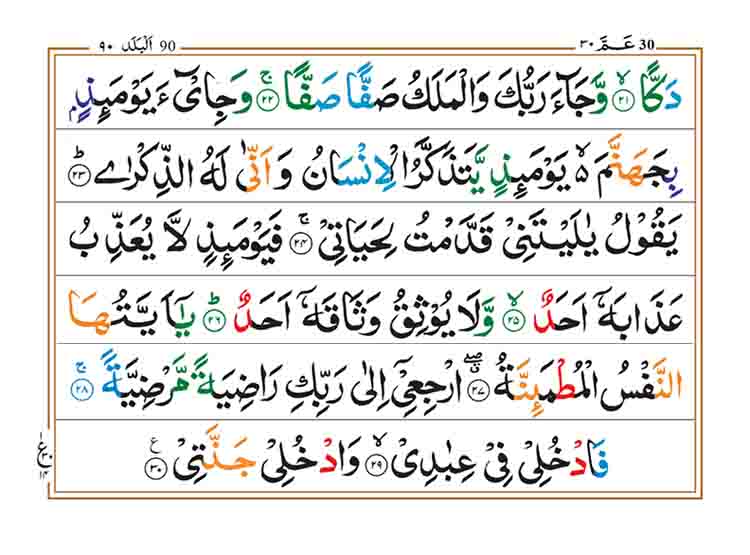 ٩٠ اَلْبَلَد 90 عَـمَّ ٣٠ 30
دَكًّا ۙ‏﴿۲۱﴾ وَّجَآءَ رَبُّكَ وَالْمَلَكُ صَفًّا صَفًّا ۚ‏﴿۲۲﴾ وَجِاىْٓءَ يَوْمَئِذٍۭ
بِجَهَنَّمَ ۙ يَوْمَئِذٍ يَّتَذَكَّرُ الْاِنْسَانُ وَاَنّٰى لَهُ الذِّكْرٰى ؕ‏﴿۲۳﴾
يَقُوْلُ يٰلَيْتَنِىْ قَدَّمْتُ لِحَيَاتِىْ ۚ‏﴿۲۴﴾ فَيَوْمَئِذٍ لَّا يُعَذِّبُ
عَذَابَهٗۤ اَحَدٌ ۙ‏﴿۲۵﴾ وَّلَا يُوْثِقُ وَثَاقَهٗۤ اَحَدٌ ؕ‏﴿۲۶﴾ يٰۤاَيَّتُهَا
النَّفْسُ الْمُطْمَئِنَّةُ ۖ‏﴿۲۷﴾ ارْجِعِىْۤ اِلٰى رَبِّكِ رَاضِيَةً مَّرْضِيَّةً ۚ‏﴿۲۸﴾
فَادْخُلِىْ فِىْ عِبٰدِىْ ۙ‏﴿۲۹﴾ وَادْخُلِىْ جَنَّتِىْ ‏﴿۳۰﴾ ع
١ ع ٣٠ ١٤